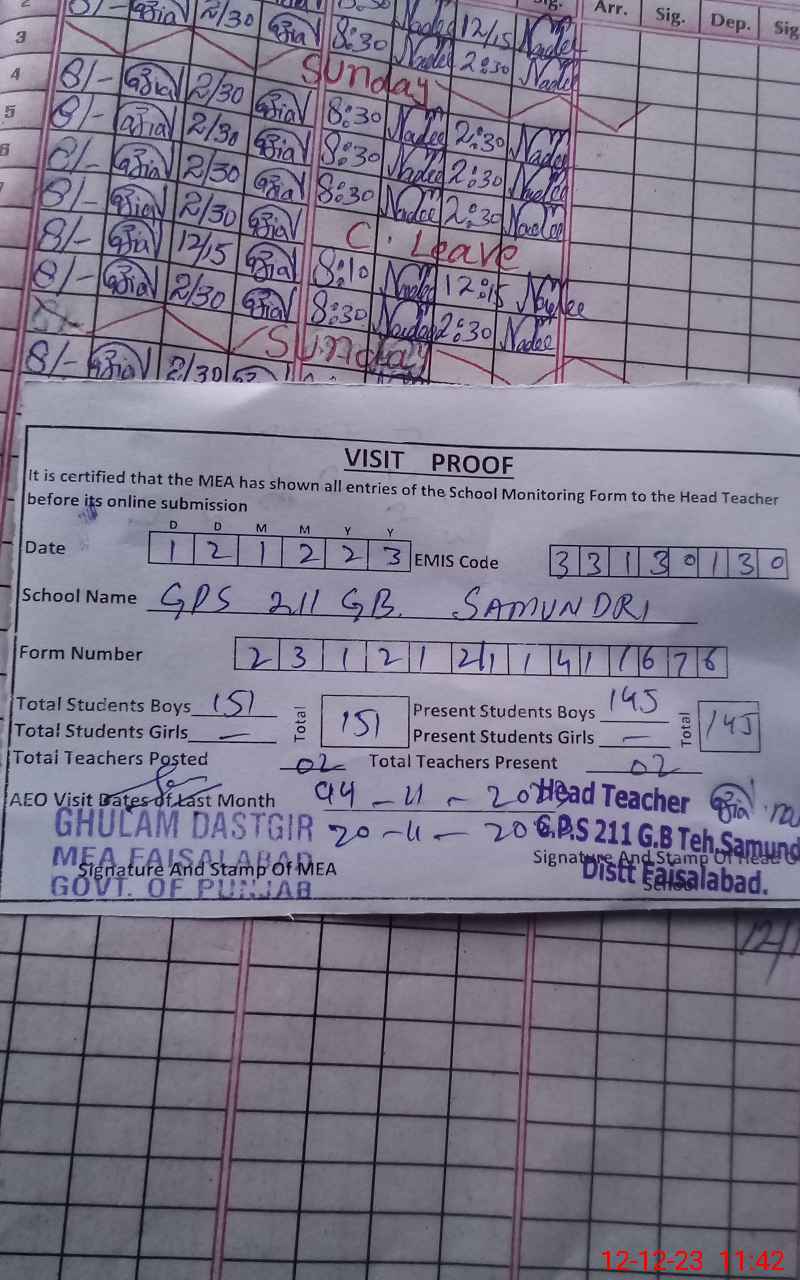 Arr. Sig. Dep. Sig
8/- 2/30 8:30 Nadee 12/15 Nadee
3 Sunday 2:30
4 8/- 2/30 8:30 Nadee 2:30 Nadee
5 8/- 2/30 8:30 Nadee 2:30 Nadee
6 8/- 2/30 8:30 Nadee 2:30 Nadee
8/- 2/30 C. Leave
8/- 12/15 8:10 Nadee 12:15 Nadee
8/- 2/30 8:30 Nadee 2:30 Nadee
Sunday
8/- 2/30
VISIT PROOF
It is certified that the MEA has shown all entries of the School Monitoring Form to the Head Teacher
before its online submission
D D M M Y Y
Date 1 2 1 2 2 3 EMIS Code 3 3 1 3 0 1 3 0
School Name GPS 211 GB. SAMUNDRI
Form Number 2 3 1 2 1 2 1 1 4 1 1 6 7 6
Total Students Boys 151 Total 151 Present Students Boys 145 Total 145
Total Students Girls — Present Students Girls —
Total Teachers Posted 02 Total Teachers Present 02
AEO Visit Dates of Last Month
Head Teacher
GHULAM DASTGIR
G.P.S 211 G.B Teh,Samund
MEA FAISALABAD
Signature And Stamp Of MEA
Signature And Stamp Of Head
Distt Faisalabad.
GOVT. OF PUNJAB
12-12-23 11:42